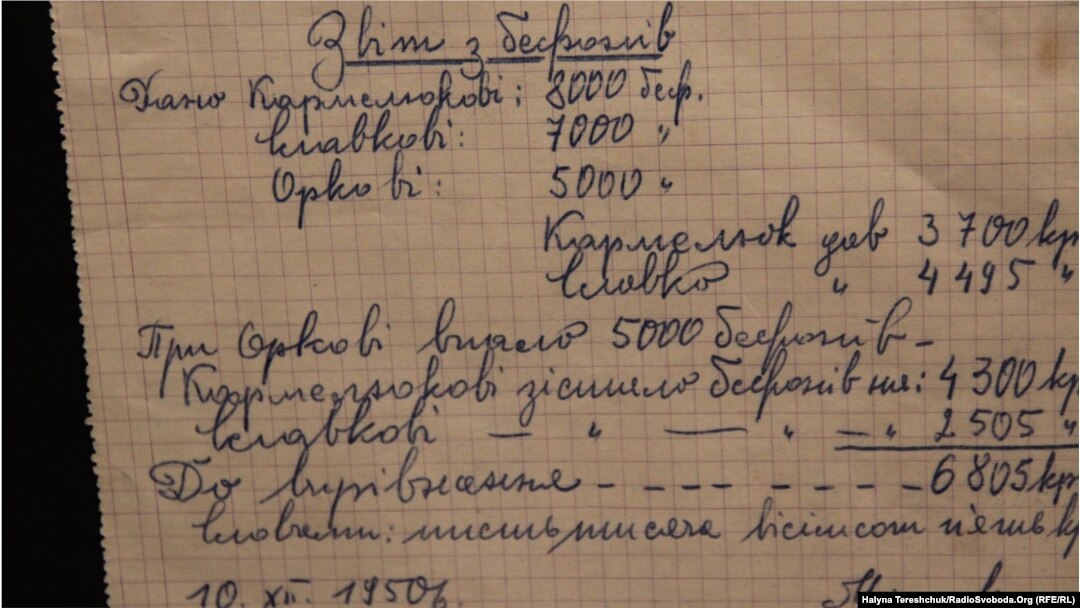 Звіт з бефонів
Дано Кармелюкові: 8000 беф.
Славкові: 7000 "
Оркові: 5000 "
Кармелюк дав 3 700 кр
Славко " 4 495 "
При Оркові впало 5000 бефонів –
Кармелюкові зістало бефонів на: 4 300 кр
Славкові — " — " — " 2 505 "
До вирівнання - - - - - - - - 6 805 кр
Словами: шістьтисяча вісімсот п'ять кр
10. XII. 1950 р.
Halyna Tereshchuk/RadioSvoboda.Org (RFE/RL)